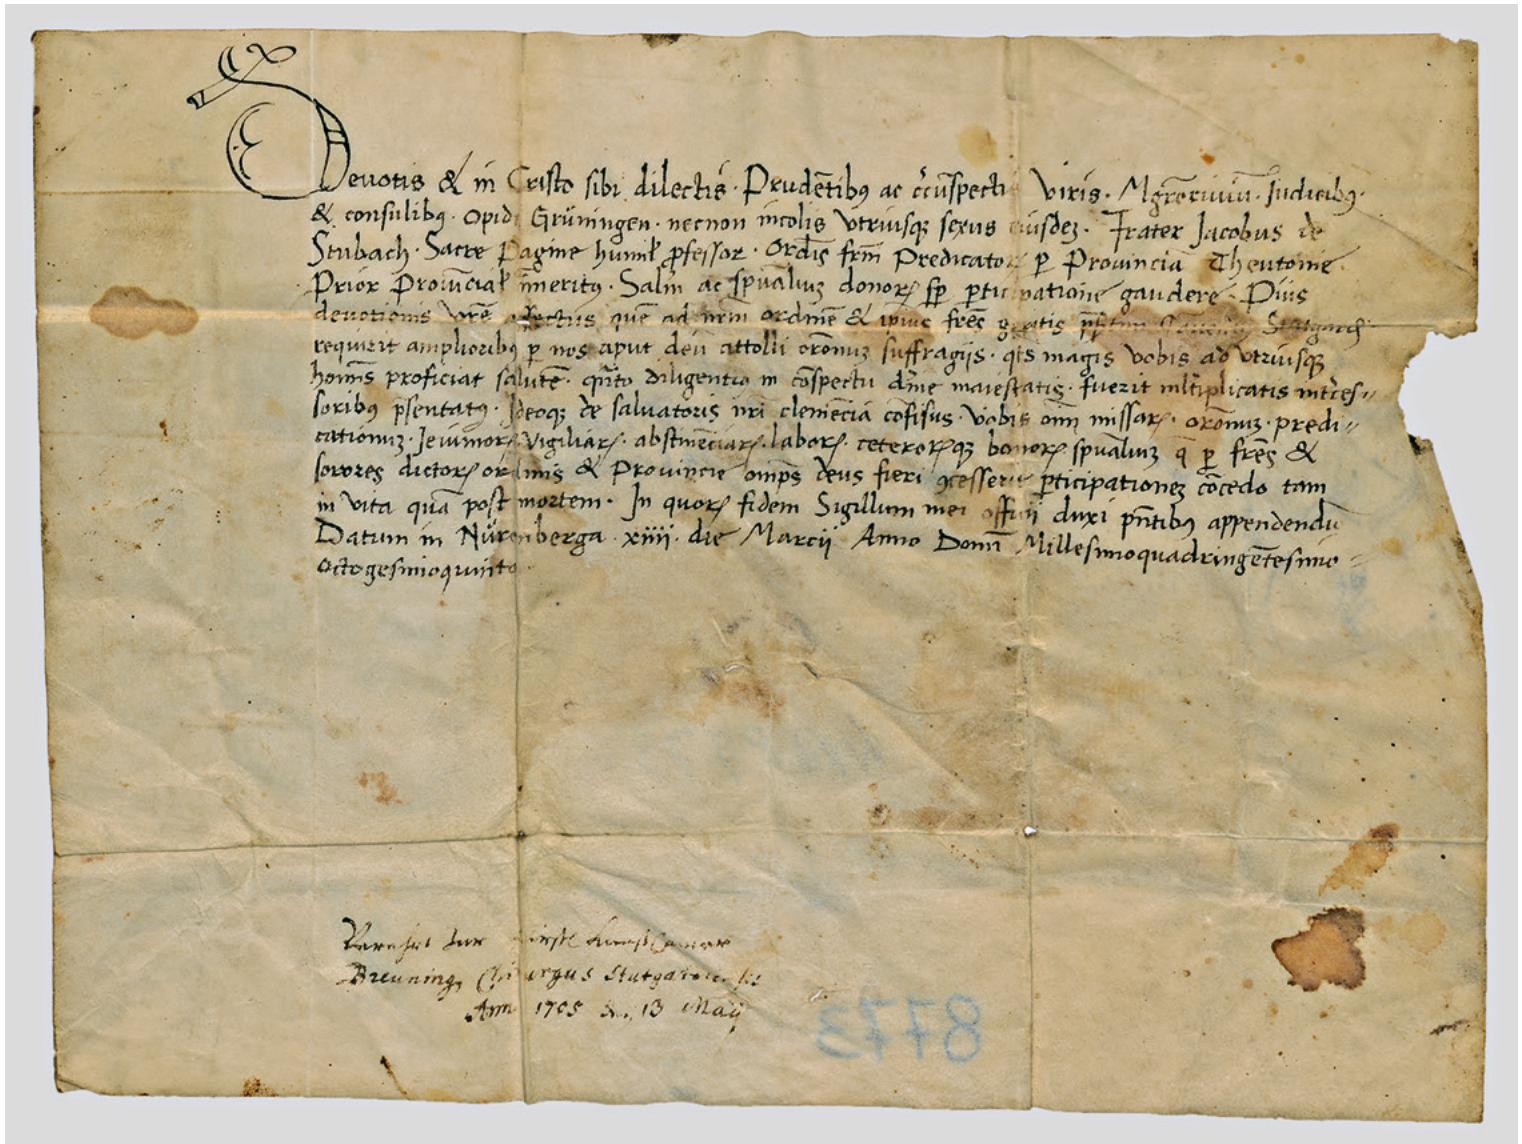 Deuotis & in Cristo sibi dilectis · Prudētibꝰ ac c̄cūspectis Viris · Mgr̄o civiū · Iudicibꝰ ·
& consulibꝰ · opidi Grüningen · necnon incolis vtriusqꝫ sexus eiusdeꝫ · Frater Jacobus de
Stubach · Sacre Pagine humił ꝓfessor · Ordīs frm̄ Predicatoꝝ ꝑ Prouinciā Theutonie ·
Prior Prouīciał īmeritꝰ · Salm̄ ac sp̄ualiuꝫ donoꝝ sp̄ ꝑticipatione gaudere · Pius
deuotionis vr̄e affectus quē ad nr̄m ordinē & ipius fr̄es
requirit amplioribꝰ ꝑ nos aput deū attolli or̄onuꝫ suffragijs · qt̄s magis vobis ad vtriusqꝫ
hoīnis proficiat salutē · qn̄to diligentiꝰ in cōspectu diīne maiestatis · fuerit mltiplicatis intc̄es-
soribꝰ p̄sentatꝰ · Ideoqꝫ de saluatoris nr̄i clemēcia cōfisus · Vobis oīm missaꝝ · or̄onuꝫ · predi-
cationuꝫ · Ieiunioꝝ Vigiliaꝝ · abstinēciaꝝ · laboꝝ · ceteroꝝqꝫ bonoꝝ sp̄ualiuꝫ q̄ ꝑ fr̄es &
sorores dictoꝝ ordinis & Prouincie oīnps deus fieri ꝯcesserit ꝑticipationeꝫ cōcedo tam
in vita quā post mortem · In quoꝝ fidem Sigillum mei officij duxi pn̄tibꝰ appendendū
Datum in Nürenberga · xiiii · die Marcij Anno Domī Millesimoquadringētesimo -
octogesimoquinto ·
Verehrt zur fürstl Kunst Camer
Breuning, Chirurgus Stutgart
Ann 1705 den 13 Maij
8773